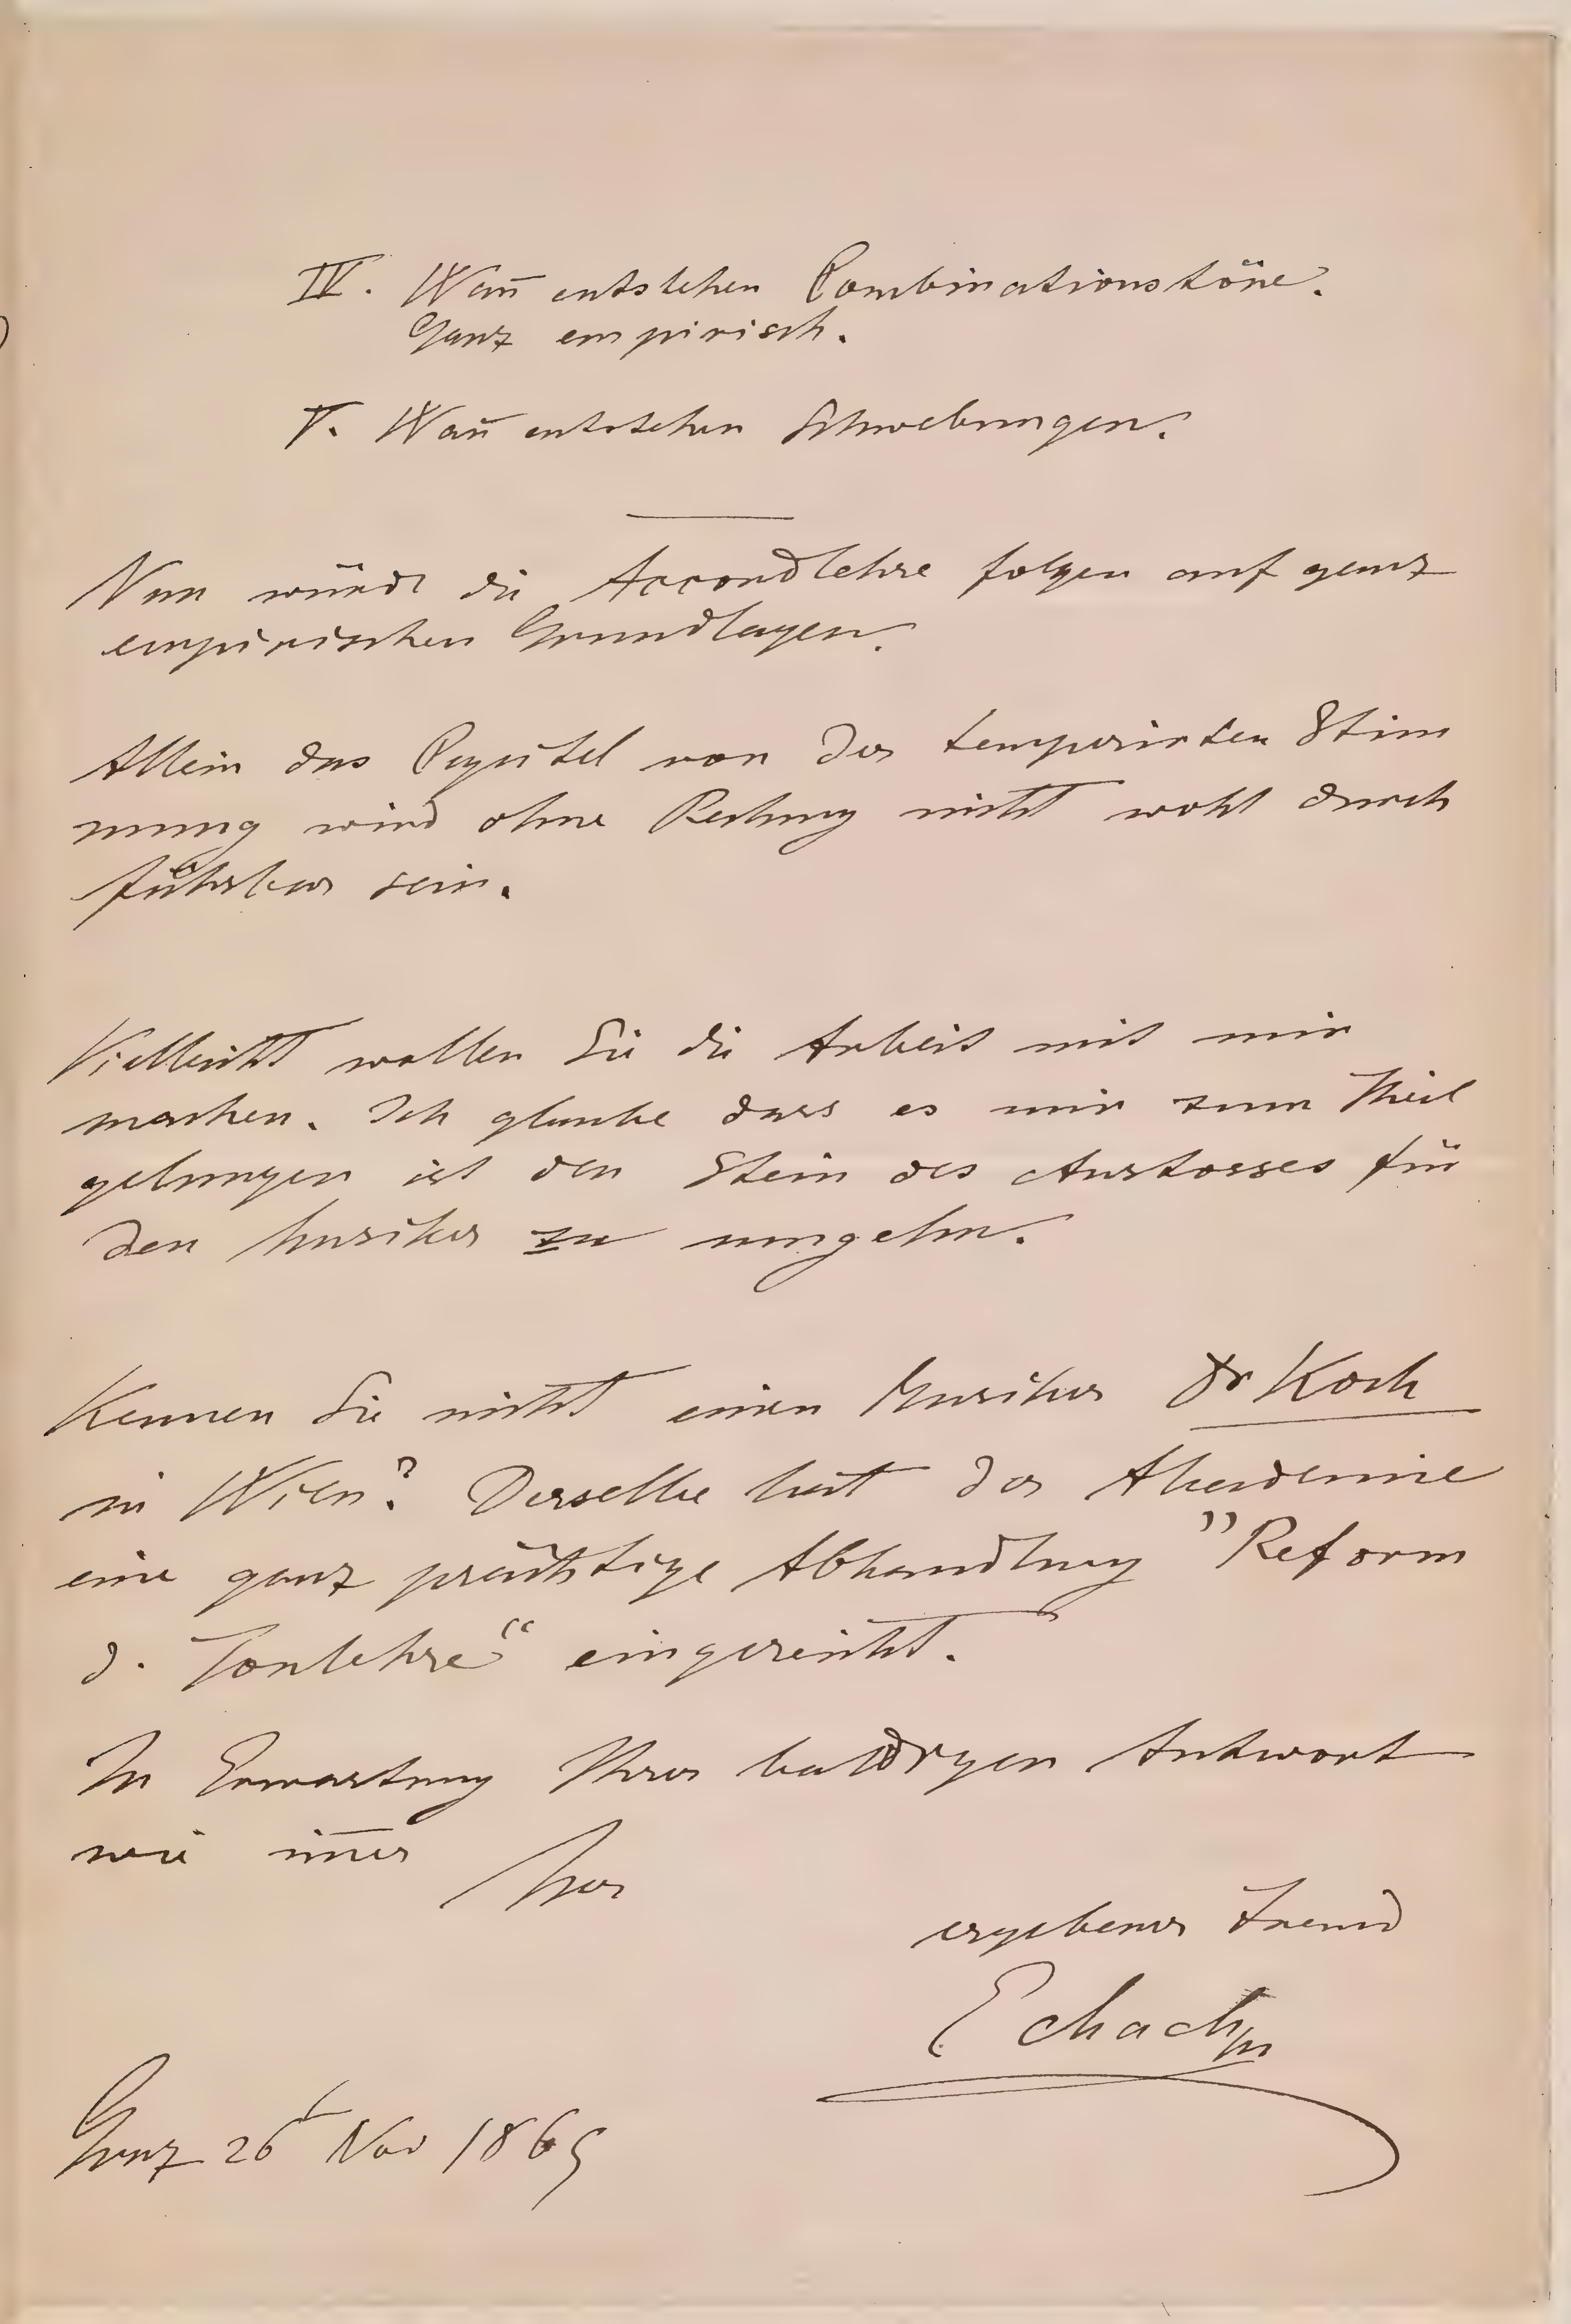 IV. Wañ entstehen Combinationstöne.
Ganz empirisch.
V. Wañ entstehen Schwebungen.
Nun würde die Accordlehre folgen auf ganz
empirischen Grundlagen.
Allein das Capitel von der temperirten Stim
mung wird ohne Rechnung nicht wohl durch
führbar sein.
Vielleicht wollen Sie die Arbeit mit mir
machen. Ich glaube dass es mir zum Theil
gelungen ist den Stein des Anstosses für
den Musiker zu umgehn.
Kennen Sie nicht einen Musiker Dr Koch
in Wien? Derselbe hat der Akademie
eine ganz prächtige Abhandlung "Reform
d. Tonlehre" eingereicht.
In Erwartung Ihrer baldigen Antwort
wie im̄er Ihr
ergebener Freund
E Mach
Graz 26t Nov 1865